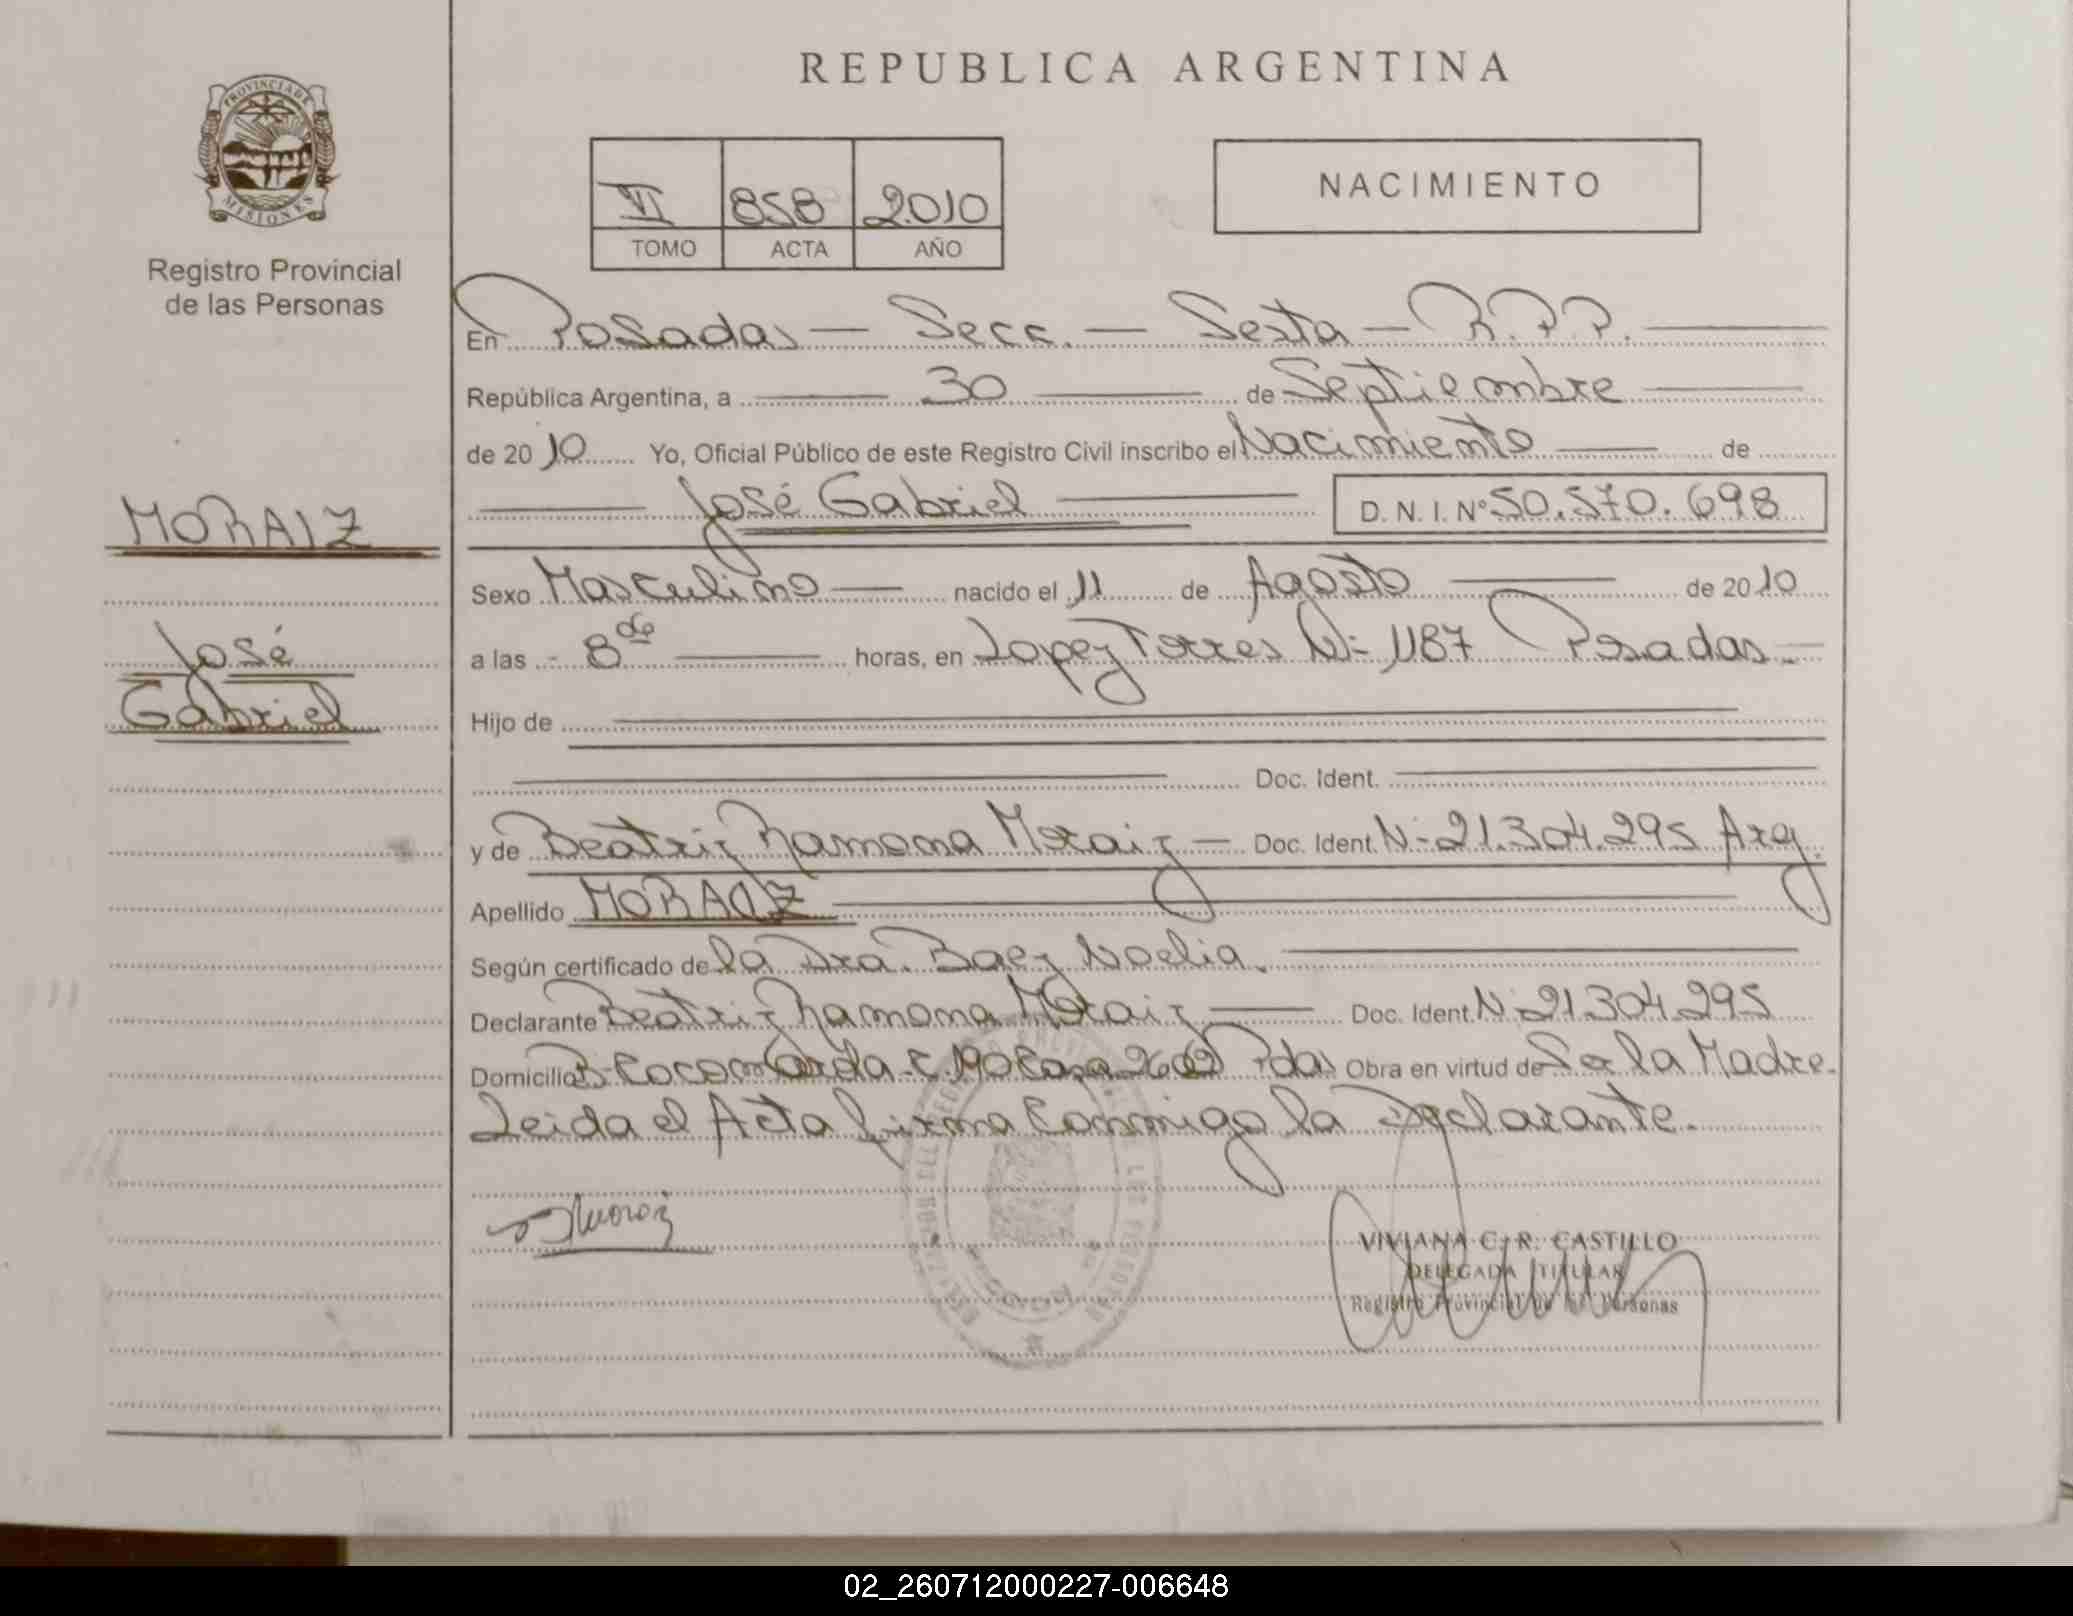 REPUBLICA ARGENTINA
PROVINCIA DE
MISIONES
Registro Provincial
de las Personas
VI 858 2010
TOMO ACTA AÑO
NACIMIENTO
En Posadas — Secc. — Sexta — R.P.P.
República Argentina, a 30 de Septiembre
de 2010 Yo, Oficial Público de este Registro Civil inscribo el Nacimiento de
José Gabriel D.N.I. Nº 50.570.698
MORAIZ
José
Gabriel
Sexo Masculino nacido el 11 de Agosto de 2010
a las 8 horas, en Lopez Torres N- 1187 Posadas.-
Hijo de
Doc. Ident.
y de Beatriz Ramona Moraiz — Doc. Ident. N- 21.304.295 Arg.
Apellido MORAIZ
Según certificado de la Dra. Baez Noelia.
Declarante Beatriz Ramona Moraiz Doc. Ident. N- 21.304.295
Domicilio B- Cocomarola C. 190 Casa Pdas Obra en virtud de Ser la Madre.
Leida el Acta firma Conmigo la Declarante.
VIVIANA C. R. CASTILLO
DELEGADA TITULAR
Registro Provincial de las Personas
02_260712000227-006648